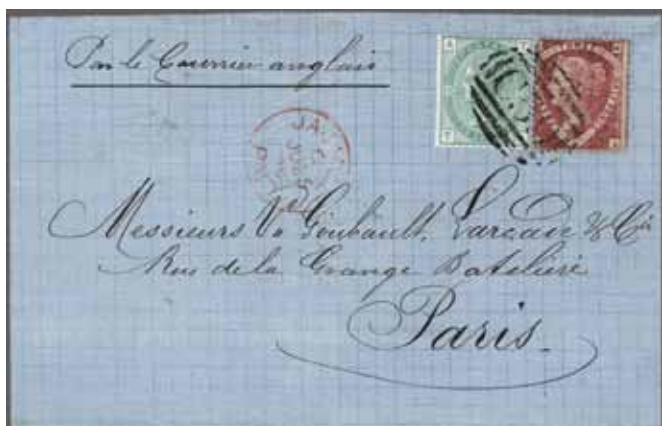 Par le Courrier anglais
JA
Messieurs Ve Goubault, &. Cie
Rue de la Grange Batelière
Paris